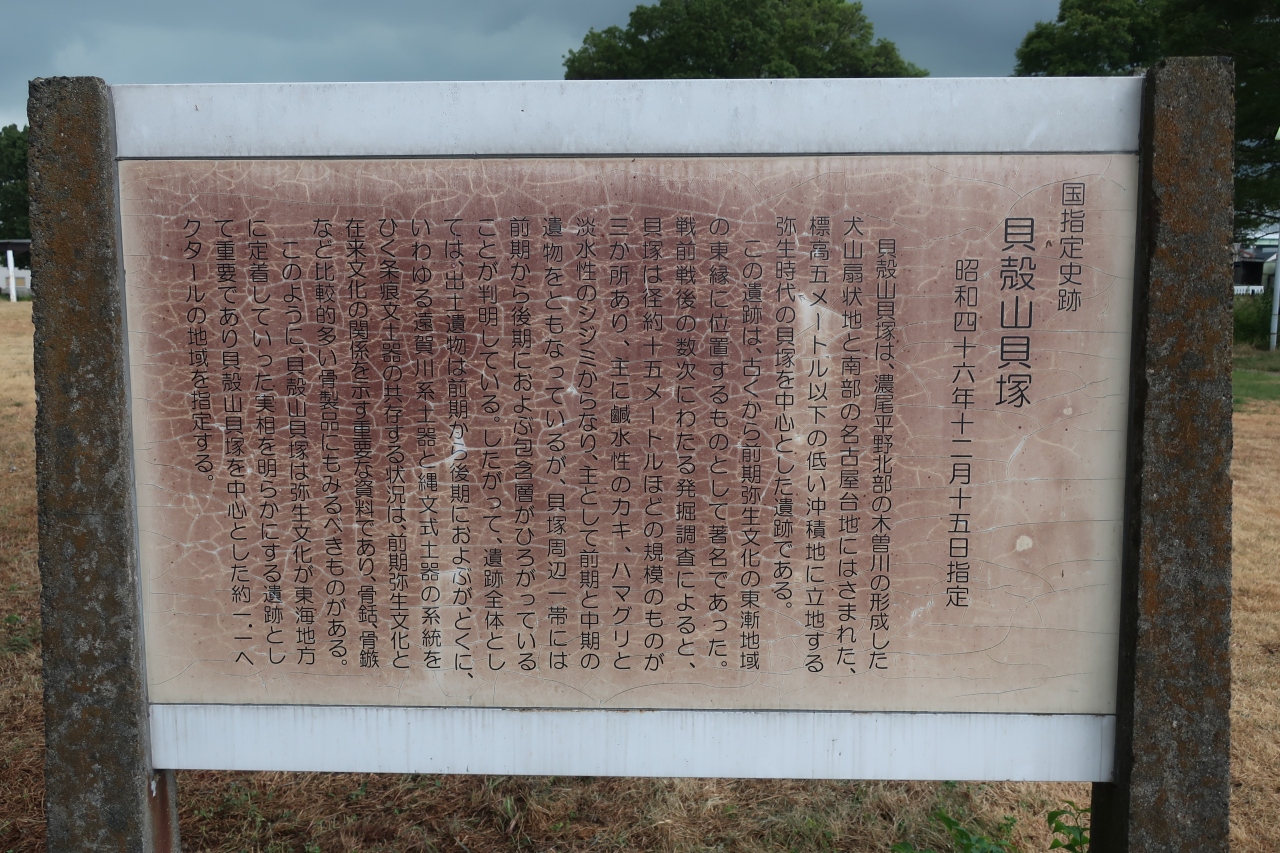 国指定史跡
貝殻山貝塚
昭和四十六年十二月十五日指定
貝殻山貝塚は、濃尾平野北部の木曽川の形成した
犬山扇状地と南部の名古屋台地にはさまれた、
標高五メートル以下の低い沖積地に立地する
弥生時代の貝塚を中心とした遺跡である。
この遺跡は、古くから前期弥生文化の東漸地域
の東縁に位置するものとして著名であった。
戦前戦後の数次にわたる発掘調査によると、
貝塚は径約十五メートルほどの規模のものが
三か所あり、主に鹹水性のカキ、ハマグリと
淡水性のシジミからなり、主として前期と中期の
遺物をともなっているが、貝塚周辺一帯には
前期から後期におよぶ包含層がひろがっている
ことが判明している。したがって、遺跡全体とし
ては、出土遺物は前期から後期におよぶが、とくに、
いわゆる遠賀川系土器と縄文式土器の系統を
ひく条痕文土器の共存する状況は、前期弥生文化と
在来文化の関係を示す重要な資料であり、骨銛、骨鏃
など比較的多い骨製品にもみるべきものがある。
このように、貝殻山貝塚は弥生文化が東海地方
に定着していった実相を明らかにする遺跡とし
て重要であり貝殻山貝塚を中心とした約一・一ヘ
クタールの地域を指定する。